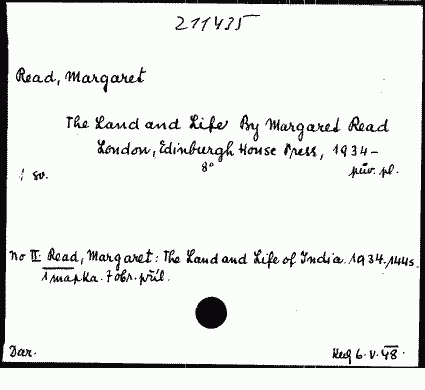 211435
Read, Margaret
The Land and Life By Margaret Read
London, Edinburgh House Press, 1934 –
8°
sv. pův. pl.
No II: Read, Margaret: The Land and Life of India. 1934. 144s.
1 mapka. 7 obr. příl.
Dar. 6.V.48.